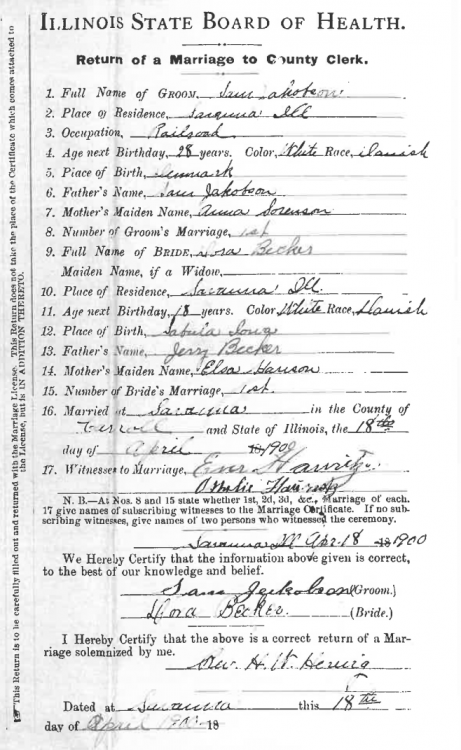 ILLINOIS STATE BOARD OF HEALTH.
Return of a Marriage to County Clerk.
1. Full Name of GROOM, Sam Jakobson
2. Place of Residence, Savanna Ill
3. Occupation, Railroad
4. Age next Birthday, 28 years. Color, White Race, Danish
5. Place of Birth, Denmark
6. Father's Name, Sam Jakobson
7. Mother's Maiden Name, Anna Sorenson
8. Number of Groom's Marriage, 1st
9. Full Name of BRIDE, Dora Becker
Maiden Name, if a Widow,
10. Place of Residence, Savanna Ill.
11. Age next Birthday, 18 years. Color, White Race, Danish
12. Place of Birth, Sabula Iowa
13. Father's Name, Jerry Becker
14. Mother's Maiden Name, Elsa Hanson
15. Number of Bride's Marriage, 1st.
16. Married at Savanna in the County of
Carroll and State of Illinois, the 18th
day of April 1900
17. Witnesses to Marriage,
N. B.—At Nos. 8 and 15 state whether 1st, 2d, 3d, &c., Marriage of each.
17 give names of subscribing witnesses to the Marriage Certificate. If no sub-
scribing witnesses, give names of two persons who witnessed the ceremony.
Savanna Ill Apr. 18 18 1900
We Hereby Certify that the information above given is correct,
to the best of our knowledge and belief.
Sam Jeckobson (Groom.)
Dora Becker. (Bride.)
I Hereby Certify that the above is a correct return of a Mar-
riage solemnized by me.
Rev. H. W.
Dated at Savanna this 18th
day of April 1900 18
This Return is to be carefully filled out and returned with the Marriage License. This Return does not take the place of the Certificate which comes attached to
the License, but is IN ADDITION THERETO.